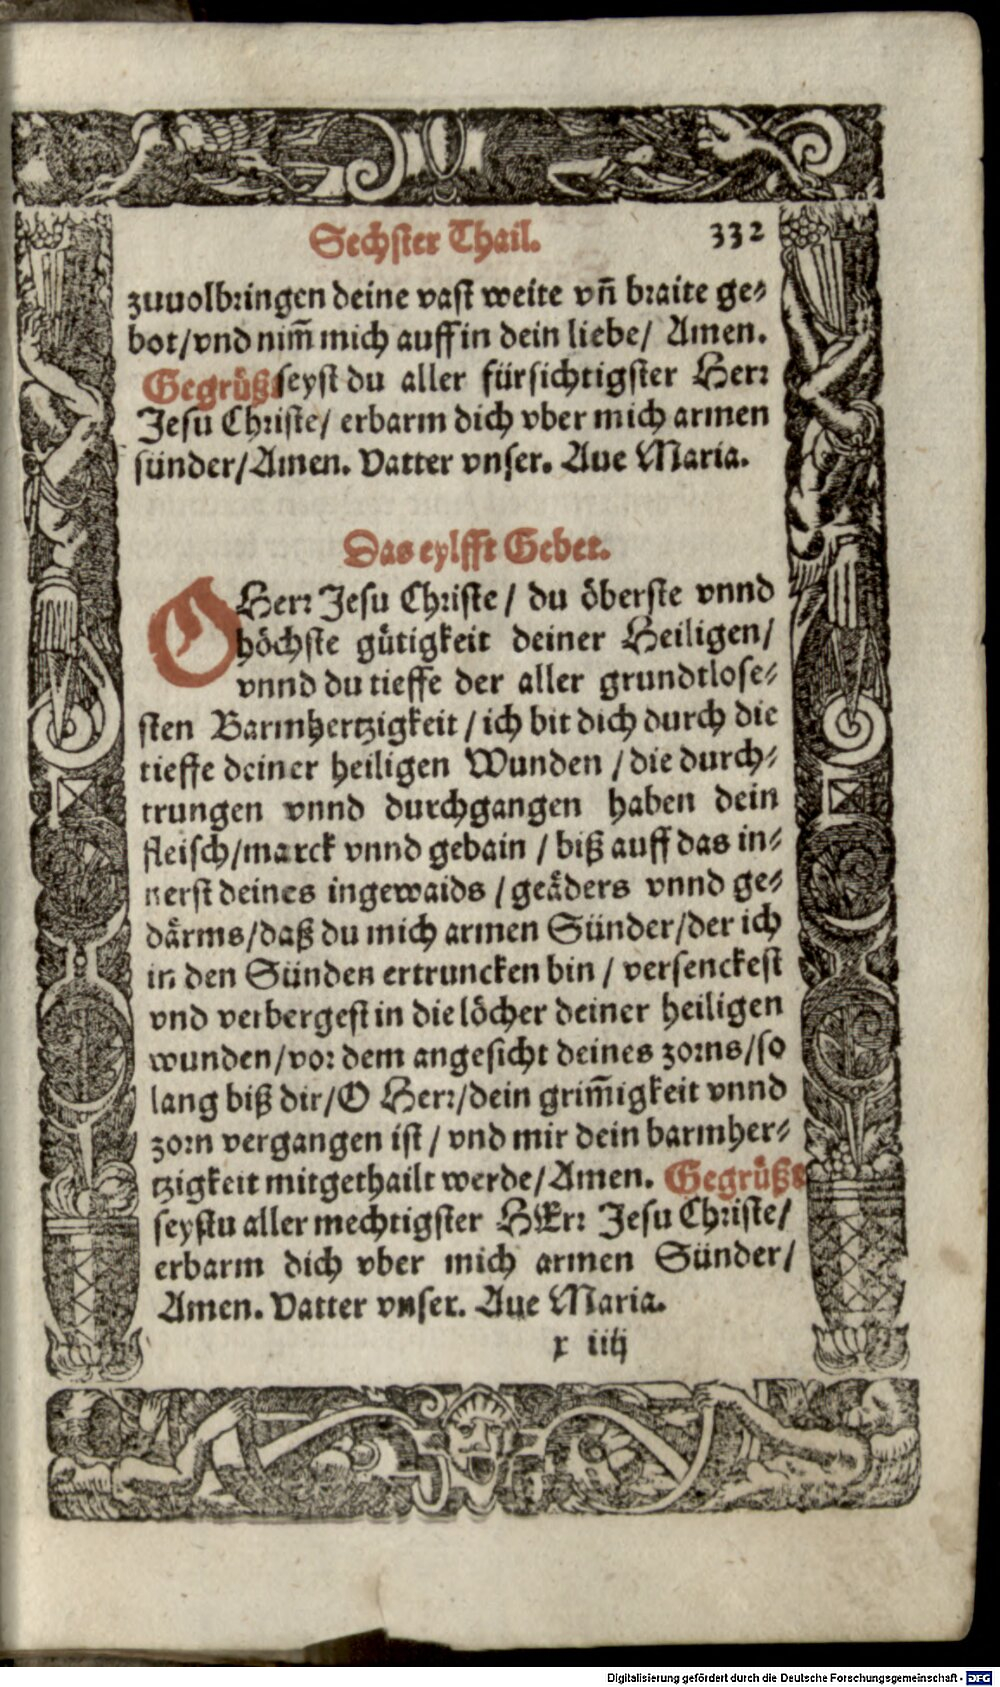 Sechster Thail. 332
zuuolbringen deine vast weite vn̄ braite ge⸗
bot/vnd nim̄ mich auff in dein liebe/ Amen.
Gegrüßt seyst du aller fürsichtigster Herr
Jesu Christe/ erbarm dich vber mich armen
sünder/Amen. Vatter vnser. Aue Maria.
Das eylfft Gebet.
O Herr Jesu Christe/ du öberste vnnd
höchste gütigkeit deiner Heiligen/
vnnd du tieffe der aller grundtlose⸗
sten Barmhertzigkeit/ich bit dich durch die
tieffe deiner heiligen Wunden/die durch⸗
trungen vnnd durchgangen haben dein
fleisch/marck vnnd gebain/biß auff das in⸗
nerst deines ingewaids/geäders vnnd ge⸗
därms/daß du mich armen Sünder/der ich
in den Sünden ertruncken bin/versenckest
vnd verbergest in die löcher deiner heiligen
wunden/vor dem angesicht deines zorns/so
lang biß dir/O Herr/dein grim̄igkeit vnnd
zorn vergangen ist/vnd mir dein barmher⸗
tzigkeit mitgethailt werde/Amen. Gegrüßt
seystu aller mechtigster HErr Jesu Christe/
erbarm dich vber mich armen Sünder/
Amen. Vatter vnser. Aue Maria.
x iiij
Digitalisierung gefördert durch die Deutsche Forschungsgemeinschaft - DFG